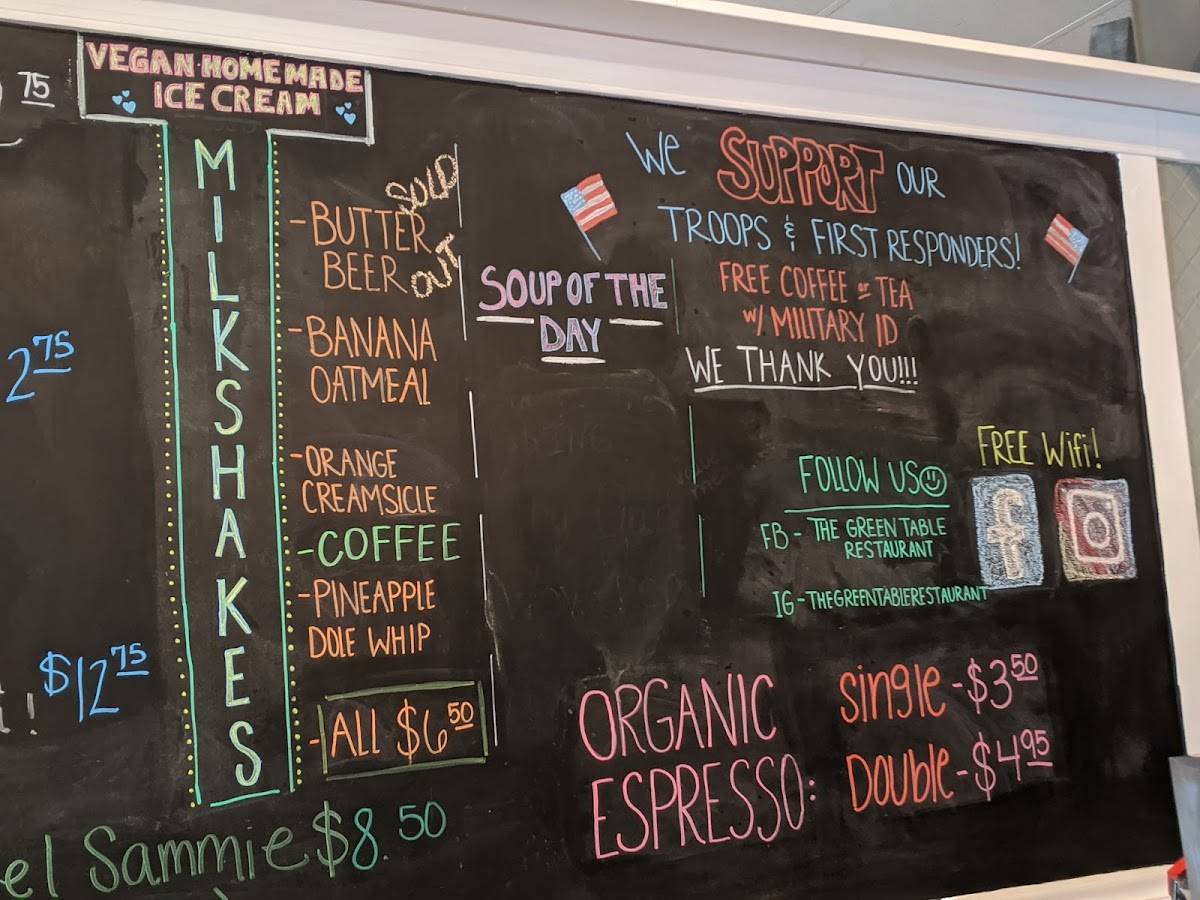 75
2.75
$12.75
!
VEGAN HOMEMADE
ICE CREAM
MILKSHAKES
-BUTTER
BEER
SOLD
OUT
-BANANA
OATMEAL
-ORANGE
CREAMSICLE
-COFFEE
-PINEAPPLE
DOLE WHIP
-ALL $6 50
el Sammie $8.50
SOUP OF THE
DAY
We SUPPORT OUR
TROOPS & FIRST RESPONDERS!
FREE COFFEE or TEA
w/ MILITARY ID
WE THANK YOU!!!
FREE Wifi!
FOLLOW US
FB - THE GREEN TABLE
RESTAURANT
f
IG - THEGREENTABLERESTAURANT
ORGANIC
ESPRESSO:
Single - $3 50
Double - $4 95